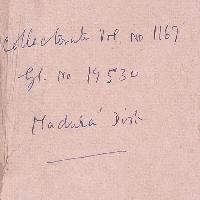 Collectorate Vol. No 1167
Gl. No 19530
Madura Dist